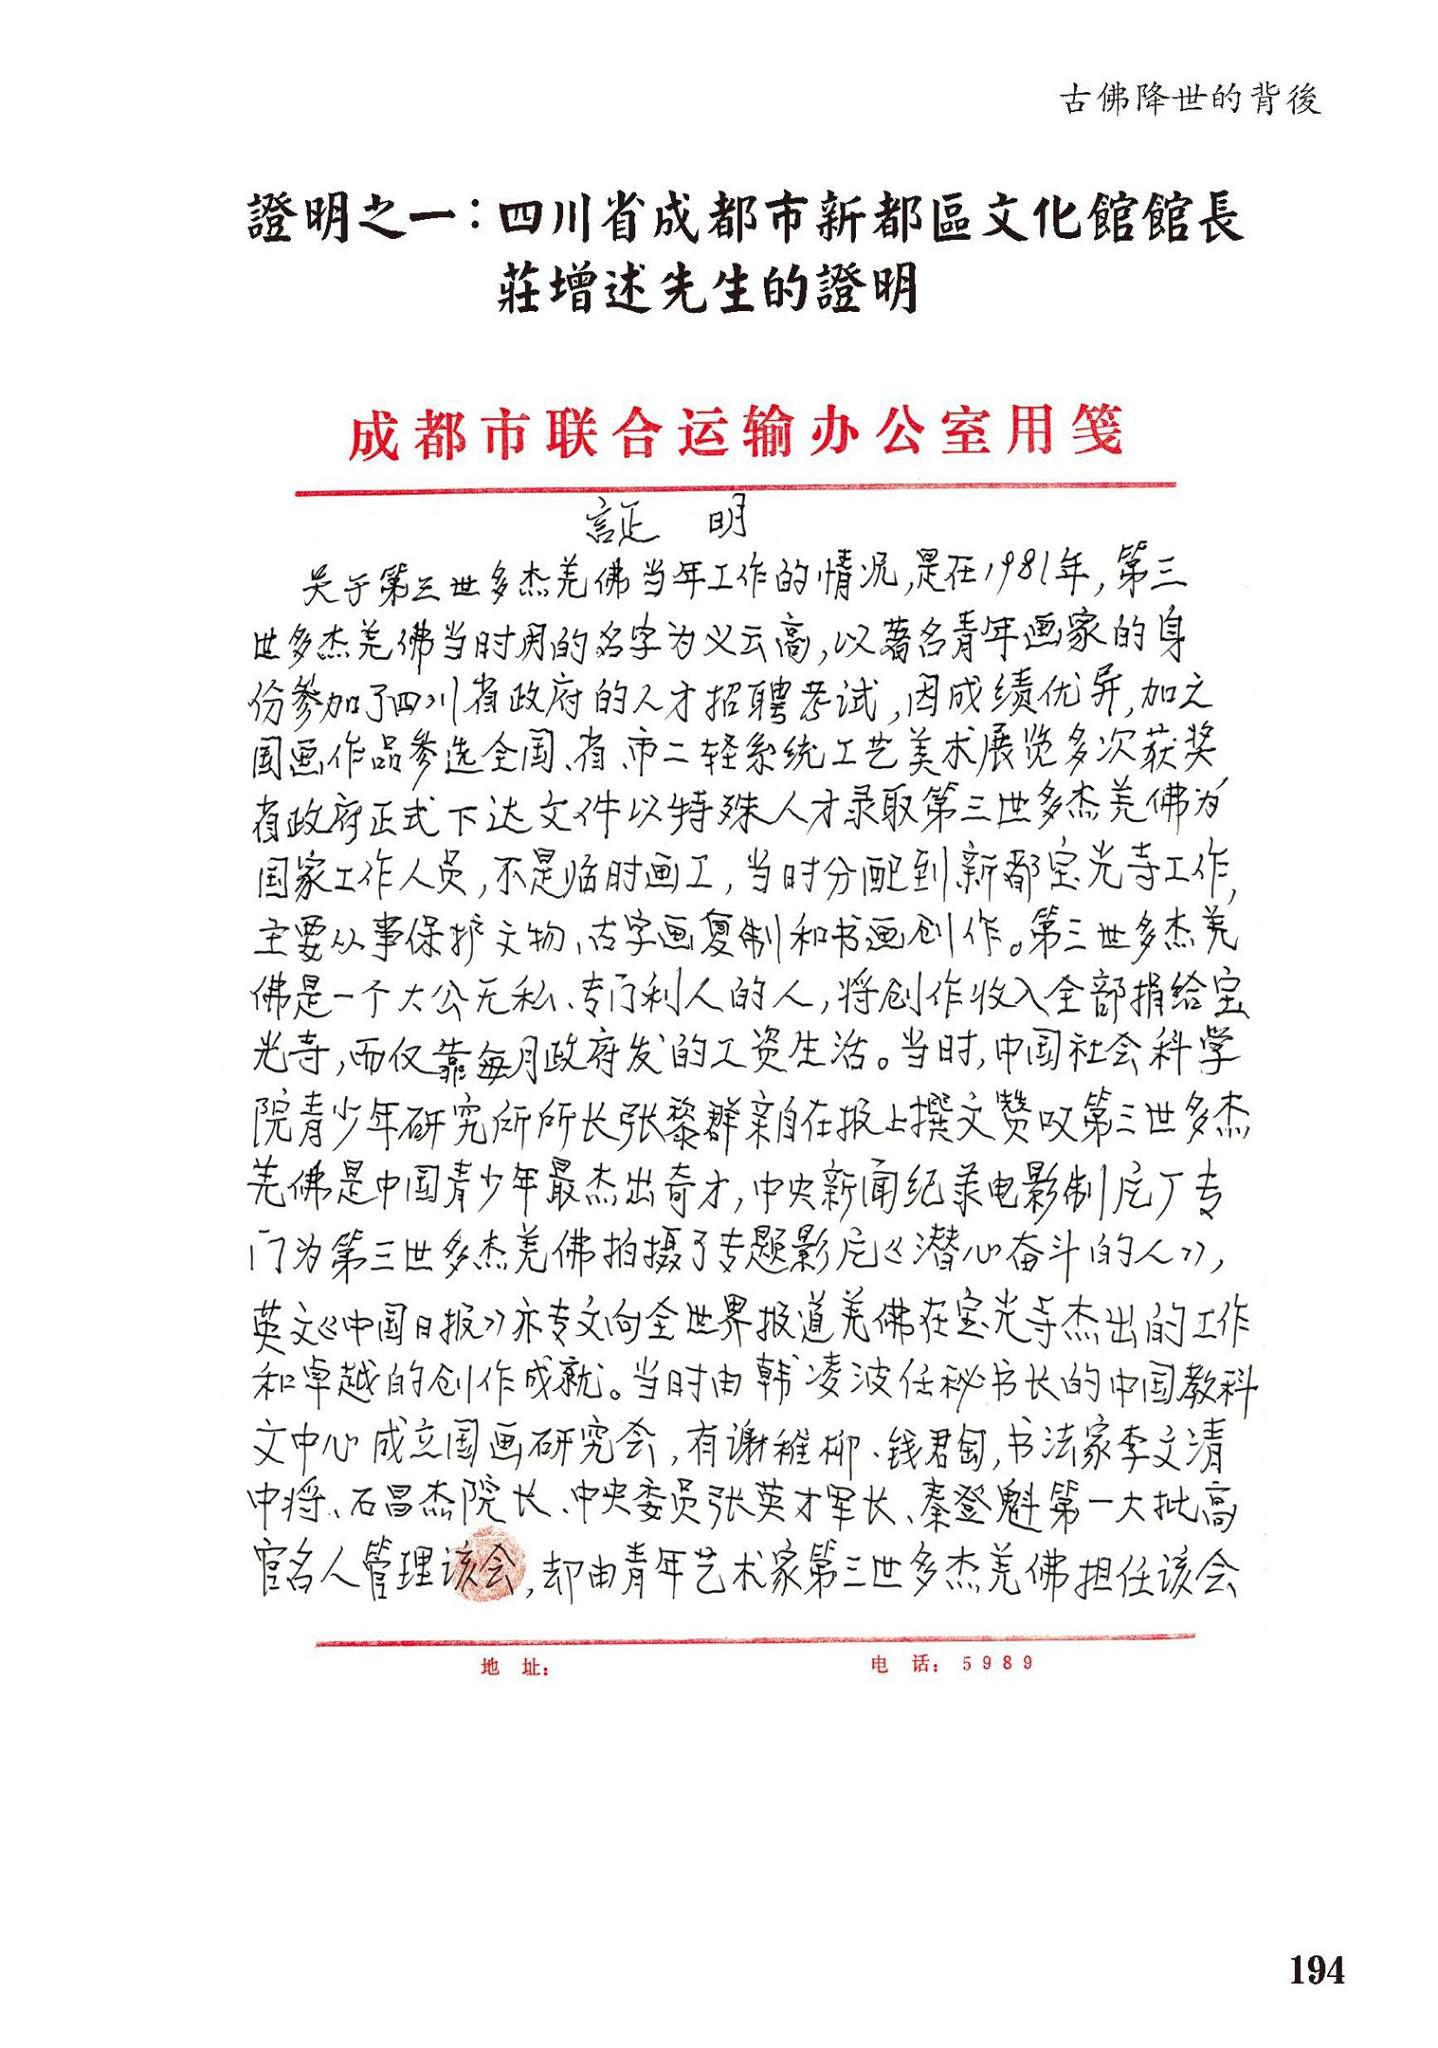 古佛降世的背後
證明之一：四川省成都市新都區文化館館長
莊增述先生的證明
成都市联合运输办公室用笺
証 明
关于第三世多杰羌佛当年工作的情况，是在1981年，第三
世多杰羌佛当时用的名字为义云高，以著名青年画家的身
份参加了四川省政府的人才招聘考试，因成绩优异，加之
国画作品参选全国、省、市二轻系统工艺美术展览多次获奖，
省政府正式下达文件以特殊人才录取第三世多杰羌佛为
国家工作人员，不是临时画工，当时分配到新都宝光寺工作，
主要从事保护文物、古字画复制和书画创作。第三世多杰羌
佛是一个大公无私、专门利人的人，将创作收入全部捐给宝
光寺，而仅靠每月政府发的工资生活。当时，中国社会科学
院青少年研究所所长张黎群亲自在报上撰文赞叹第三世多杰
羌佛是中国青少年最杰出奇才，中央新闻纪录电影制片厂专
门为第三世多杰羌佛拍摄了专题影片《潜心奋斗的人》，
英文《中国日报》亦专文向全世界报道羌佛在宝光寺杰出的工作
和卓越的创作成就。当时由韩凌波任秘书长的中国教科
文中心成立国画研究会，有谢稚柳、钱君匋，书法家李文清
中将、石昌杰院长、中央委员张英才军长、秦登魁第一大批高
官名人管理该会，却由青年艺术家第三世多杰羌佛担任该会
地 址：
电 话：5989
194